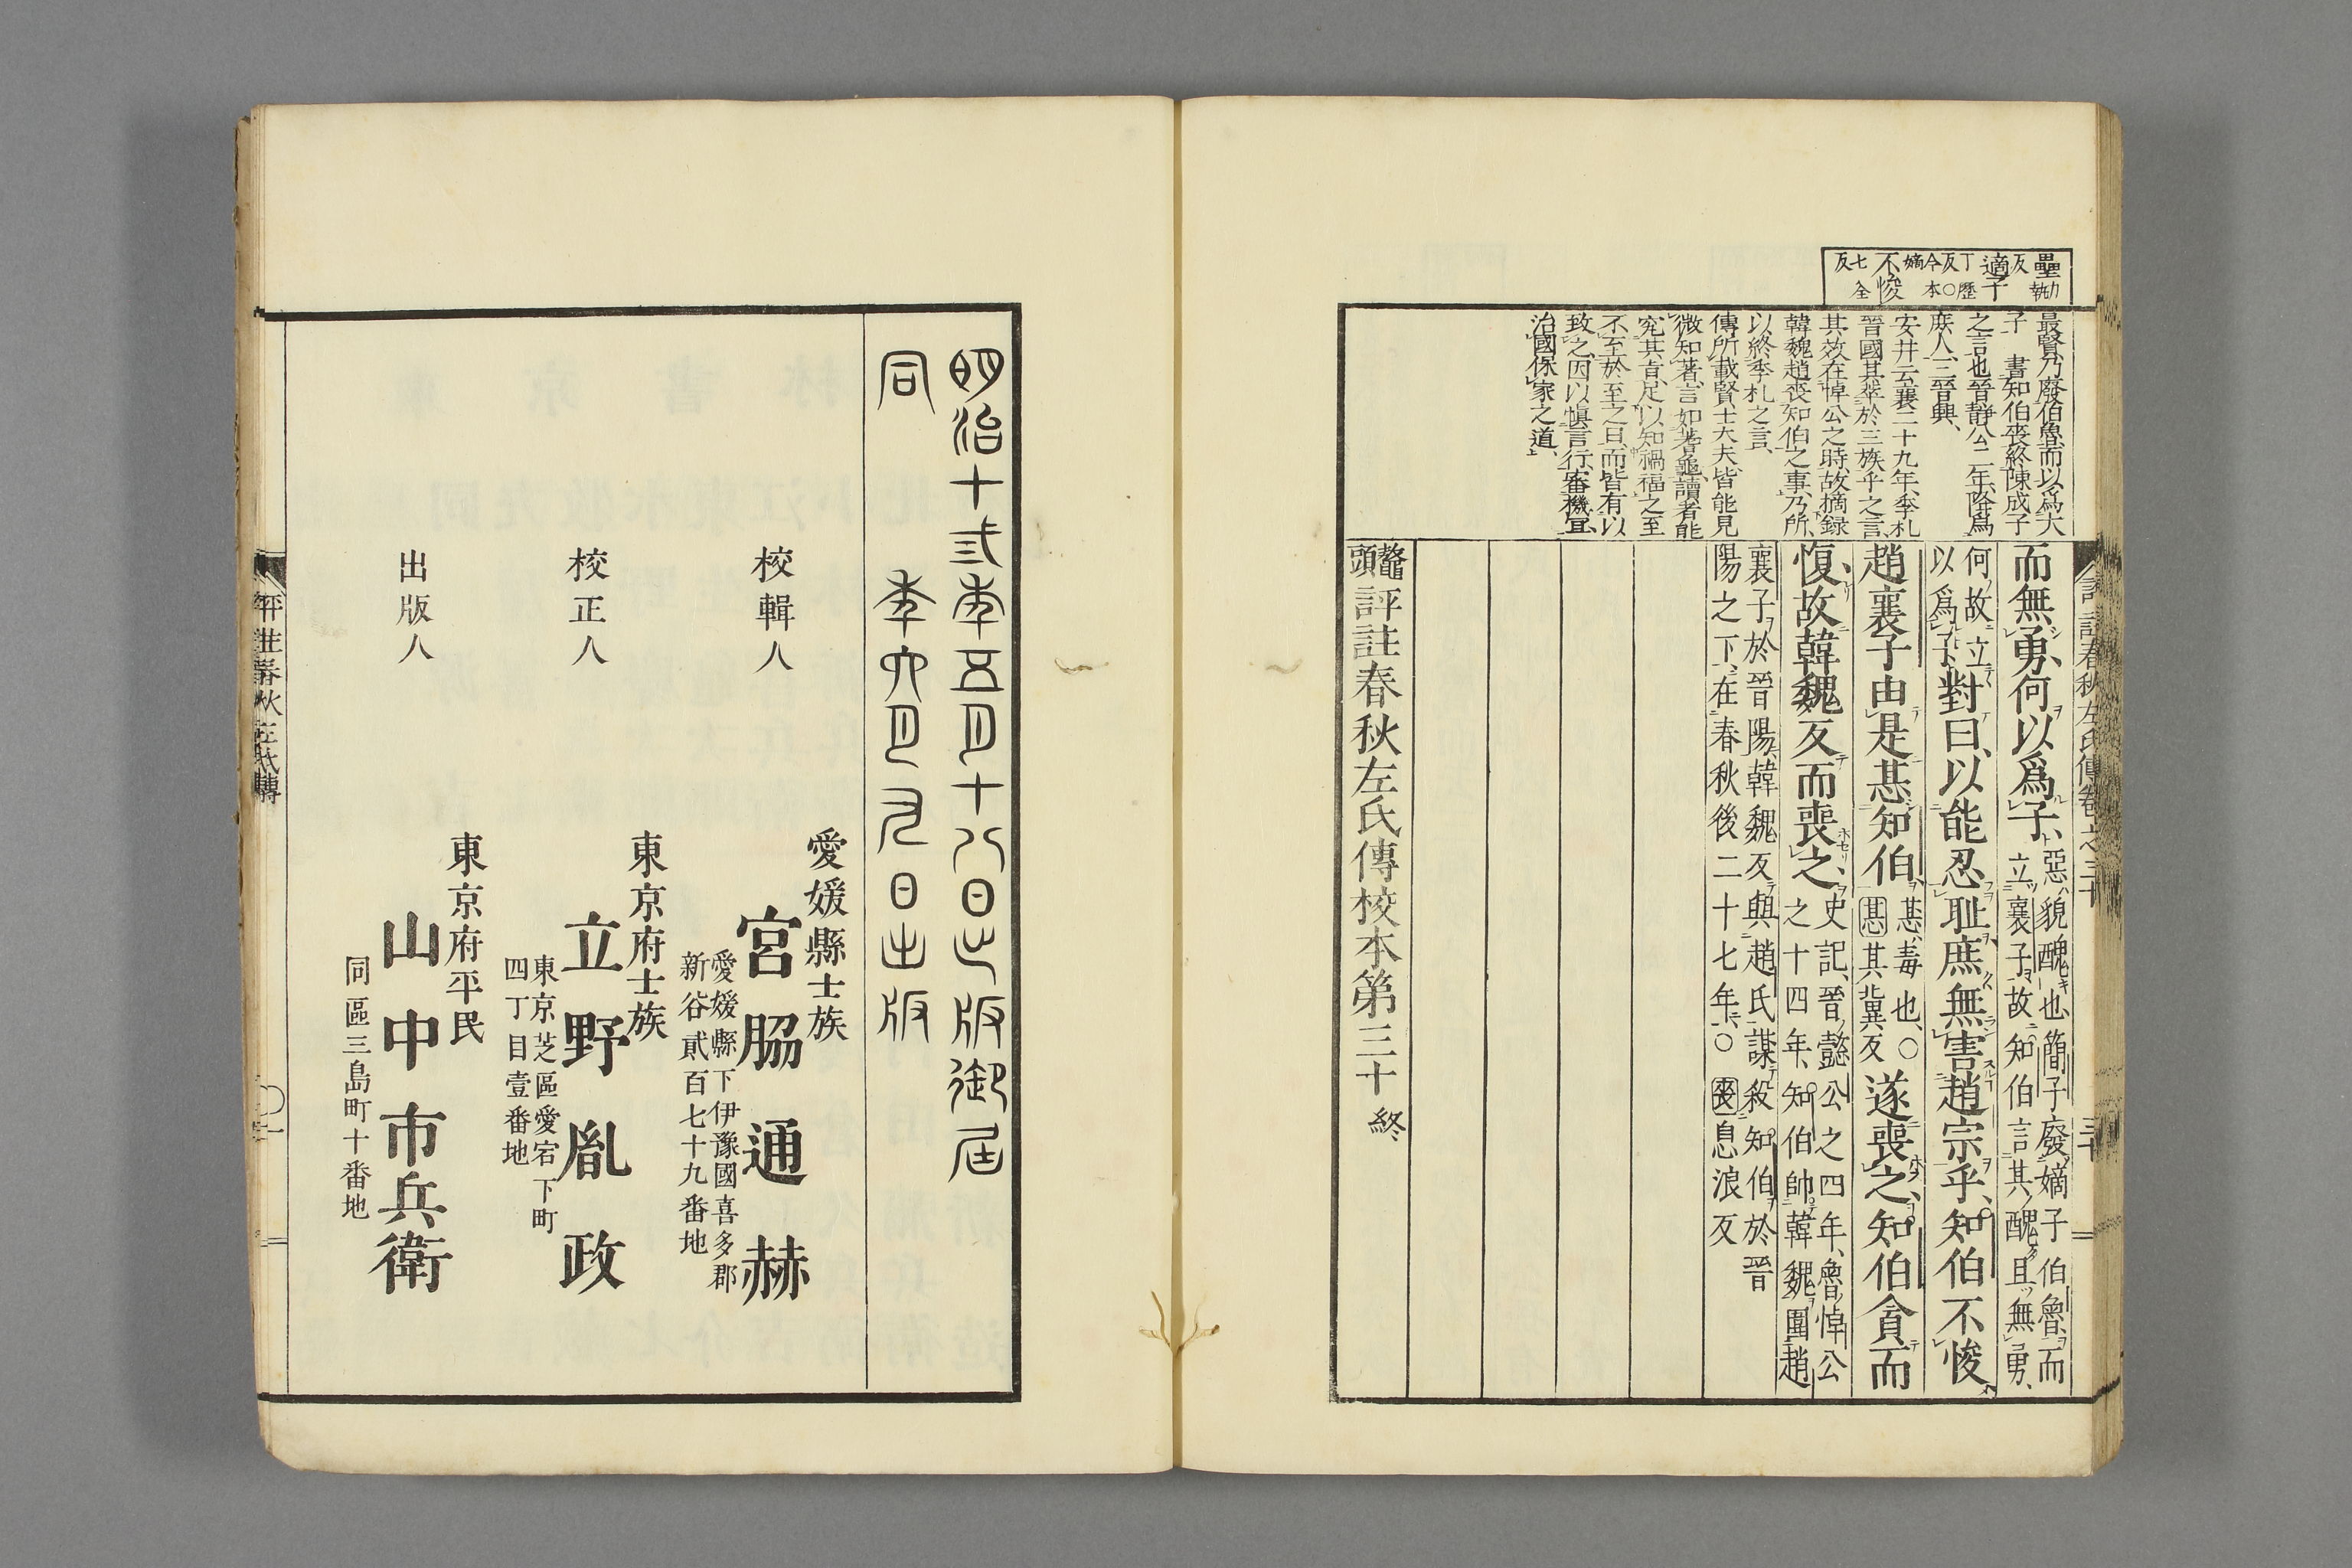 壘 力軌反
適子 丁歷反○今本嫡
不悛 七全反
最賢乃廢伯魯而以爲大
子　書知伯喪終陳成子
之言也晉靜公二年降爲
庶人三晉興、
安井云襄二十九年季札
晉國其萃於三族乎之言
其效在悼公之時故摘錄
韓魏趙喪知伯之事乃所
以終季札之言、
傳所載賢士大夫皆能見
微知著言如蓍龜讀者能
究其旨足以知禍福之至
不至於至之日而皆有以
致之因以愼言行審機宜
治國保家之道
評註春秋左氏傳卷之三十
三十
而無勇、何以爲子、惡貌醜也、簡子廢嫡子伯魯、而立襄子、故知伯言其醜且無勇、
何故立以爲子、對曰、以能忍耻、庶無害趙宗乎、知伯不悛、
趙襄子由是惎知伯、惎、毒也、○惎其冀反遂喪之、知伯貪而
愎、故韓魏反而喪之、史記、晉懿公之四年、魯悼公之十四年、知伯帥韓魏圍趙
襄子於晉陽、韓魏反與趙氏謀殺知伯於晉陽之下、在春秋後二十七年、○喪息浪反
鼇頭評註春秋左氏傳校本第三十 終
明治十貳年五月十八日出版御届
同　　　年六月九日出版
校輯人
愛媛縣士族
宮脇通赫
愛媛縣下伊豫國喜多郡
新谷貳百七十九番地
校正人
東京府士族
立野胤政
東京芝區愛宕下町
四丁目壹番地
出版人
東京府平民
山中市兵衛
同區三島町十番地
評註春秋左氏傳